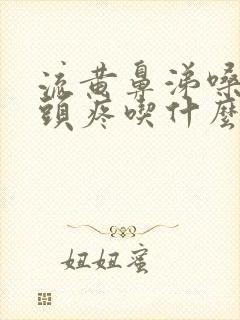 流黄鼻涕嗓
頭疼喫什麼
妞妞蜜